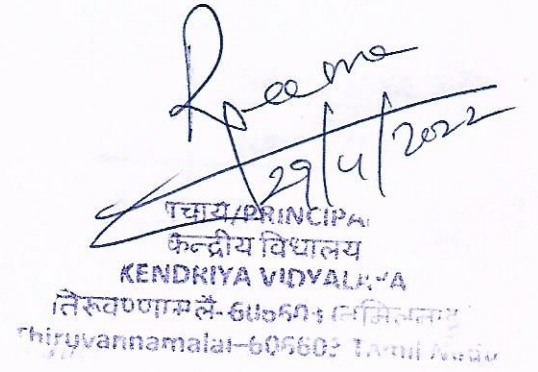 Reema
29/4/2022
प्राचार्य/PRINCIPAL
केन्द्रीय विधालय
KENDRIYA VIDYALAYA
तिरूवण्णामलै-
Thiruvannamalai-606603 Tamil Nadu